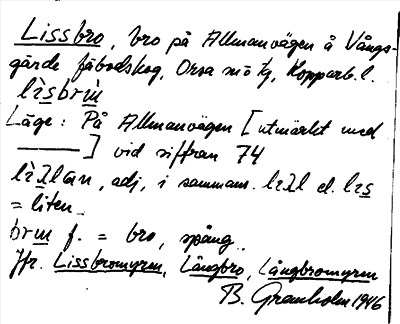 Lissbro, bro på Allmanvägen å Vångs-
gärde fäbodskog, Orsa sn o tg, Kopparb. l.
lìsbrɯ
Läge: På Allmanvägen [utmärkt med
———] vid siffran 74
lìƛlan, adj, i sammans. lɩƛl el. lɩs
= liten.
brɯ f. = bro, spång.
Jfr. Lissbromyren, Långbro, Långbromyren
B. Granholm 1946